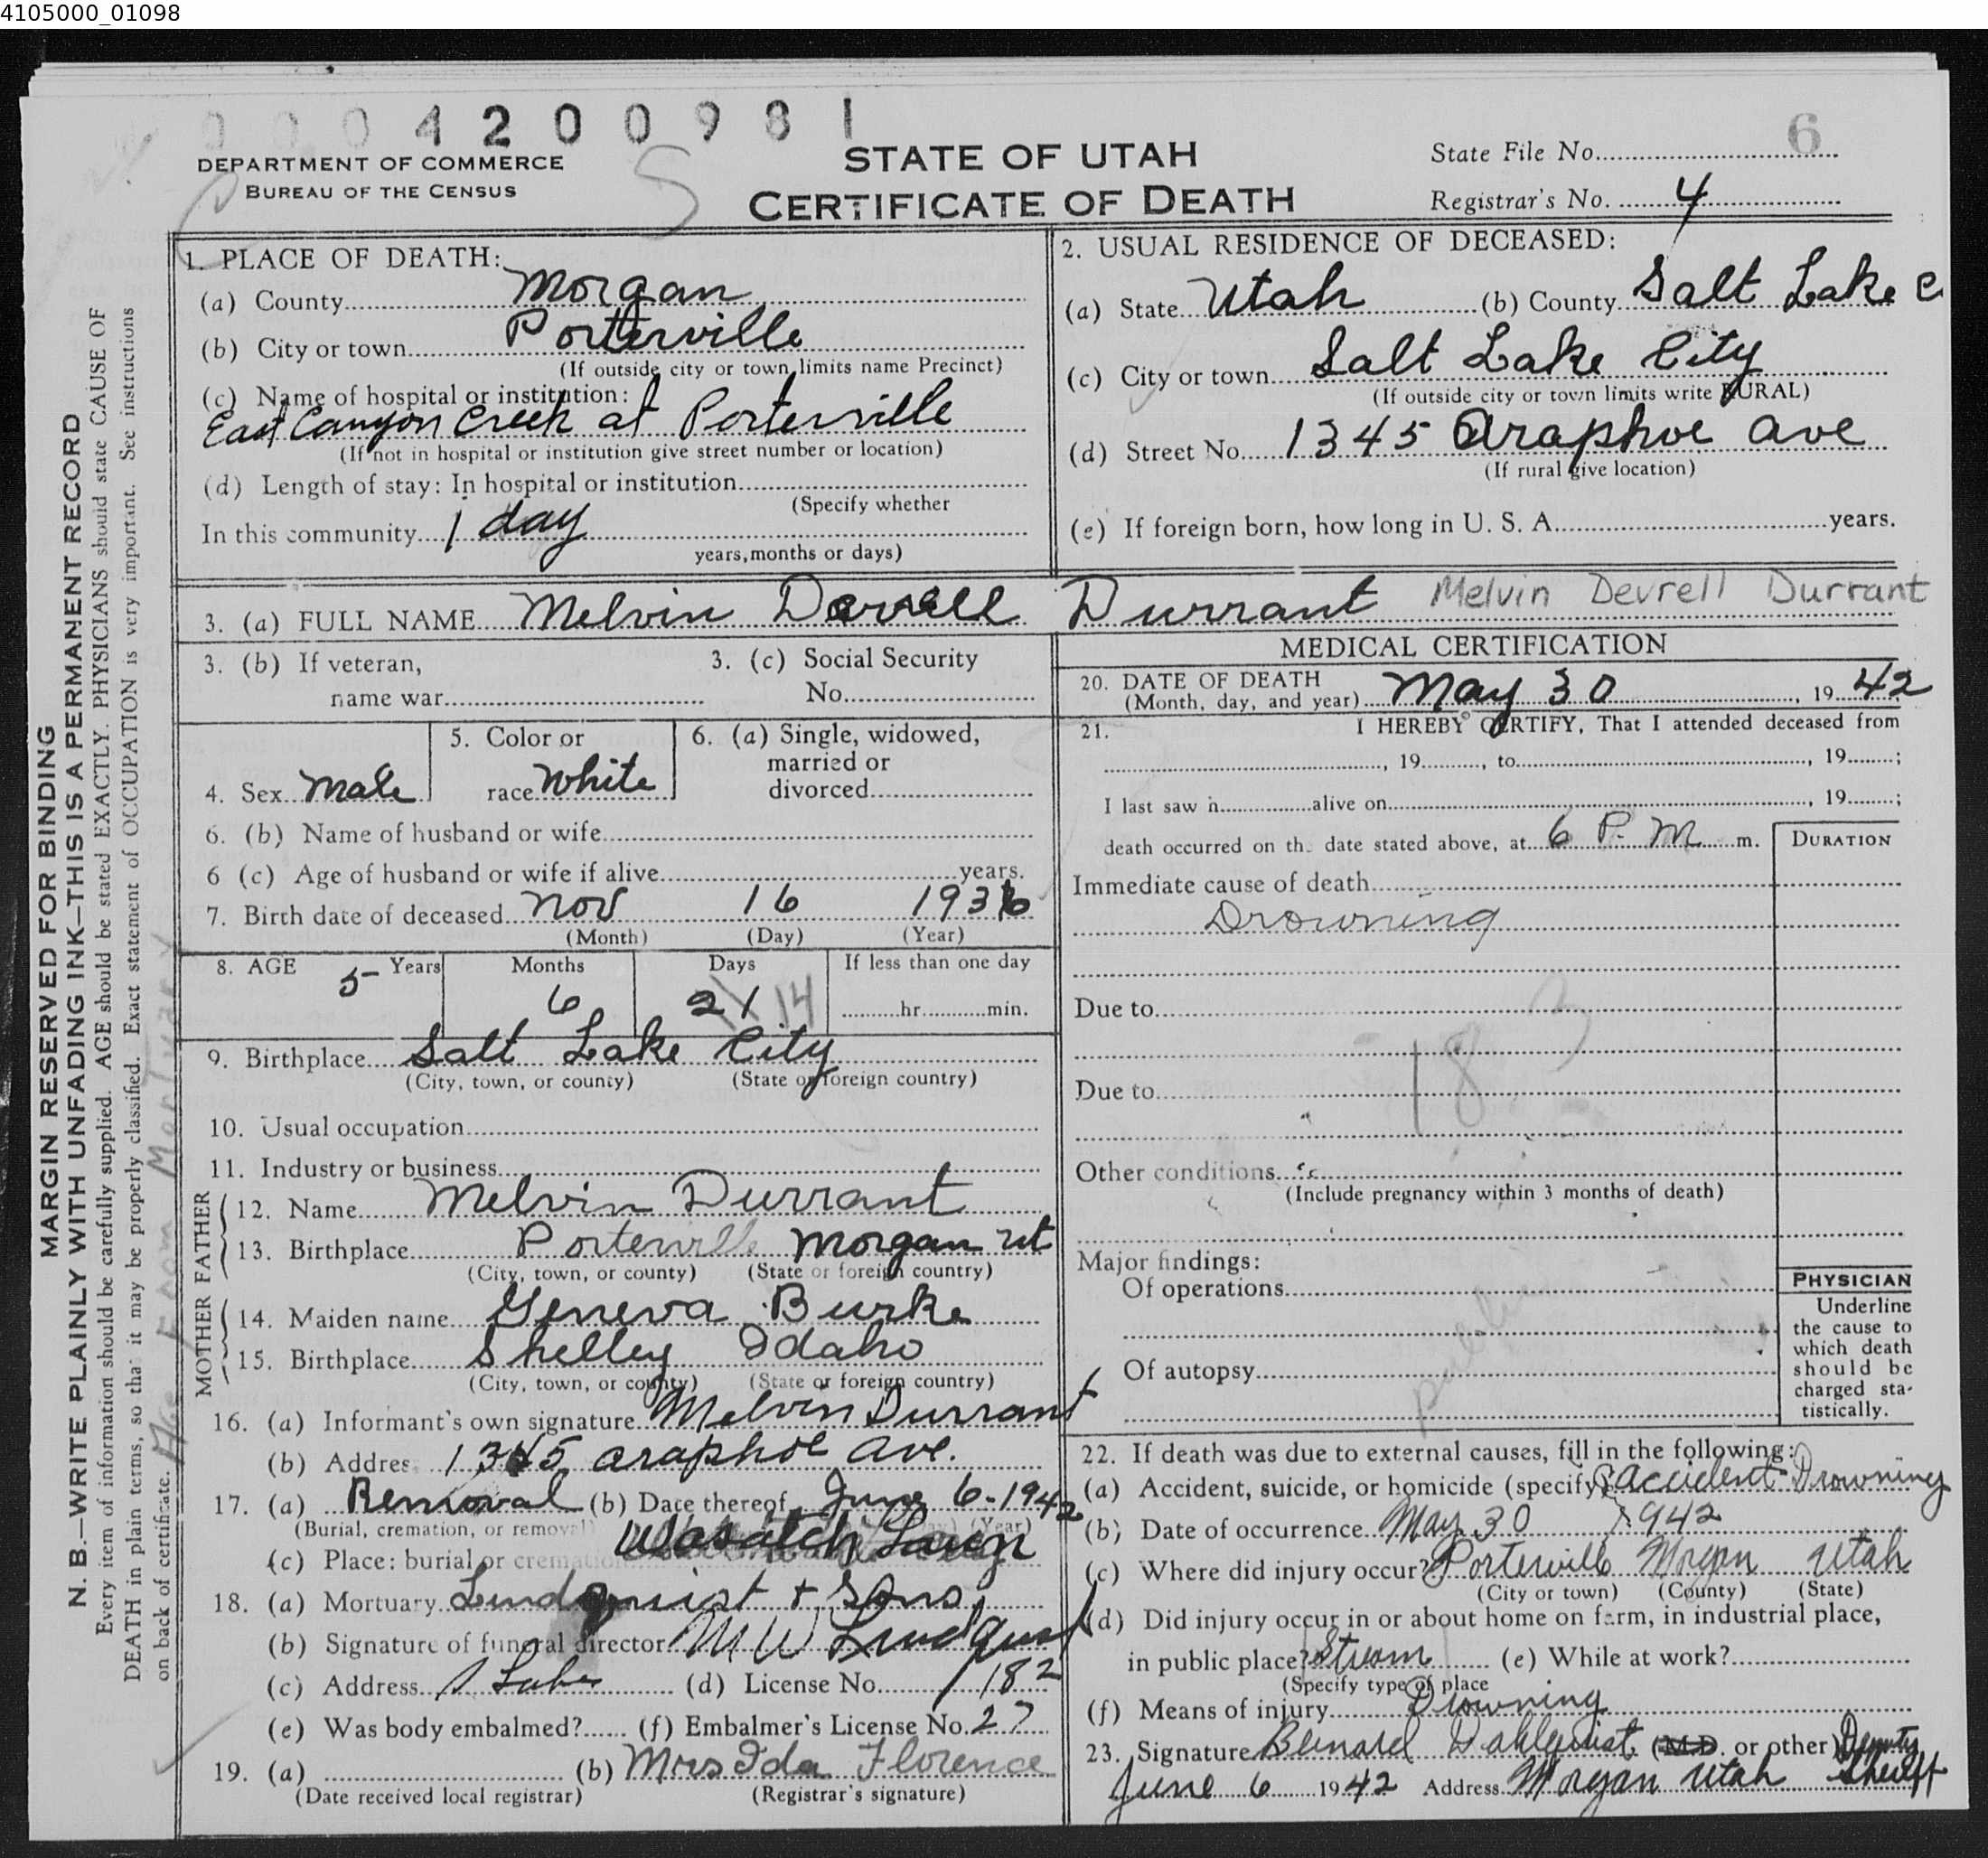 4105000_01098
0004200981
6
DEPARTMENT OF COMMERCE
BUREAU OF THE CENSUS
STATE OF UTAH
CERTIFICATE OF DEATH
State File No.
Registrar's No. 4
MARGIN RESERVED FOR BINDING
N. B.—WRITE PLAINLY WITH UNFADING INK—THIS IS A PERMANENT RECORD
Every item of information should be carefully supplied. AGE should be stated EXACTLY. PHYSICIANS should state CAUSE OF
DEATH in plain terms, so that it may be properly classified. Exact statement of OCCUPATION is very important. See instructions
on back of certificate.
Age From Mortuary
1. PLACE OF DEATH:
(a) County Morgan
(b) City or town Porterville
(If outside city or town limits name Precinct)
(c) Name of hospital or institution:
East Canyon Creek at Porterville
(If not in hospital or institution give street number or location)
(d) Length of stay: In hospital or institution
(Specify whether
In this community 1 day
years, months or days)
2. USUAL RESIDENCE OF DECEASED:
(a) State Utah (b) County Salt Lake C
(c) City or town Salt Lake City
(If outside city or town limits write RURAL)
(d) Street No. 1345 Araphoe ave
(If rural give location)
(e) If foreign born, how long in U. S. A. years.
3. (a) FULL NAME Melvin Durrant Melvin Devrell Durrant
3. (b) If veteran,
name war
3. (c) Social Security
No.
4. Sex Male
5. Color or
race White
6. (a) Single, widowed,
married or
divorced
6. (b) Name of husband or wife
6 (c) Age of husband or wife if alive years.
7. Birth date of deceased Nov 16 1936
(Month) (Day) (Year)
8. AGE 5 Years Months 6 Days 21 14 If less than one day
hr. min.
9. Birthplace Salt Lake City
(City, town, or county) (State or foreign country)
10. Usual occupation
11. Industry or business
FATHER
12. Name Melvin Durrant
13. Birthplace Porterville Morgan Ut
(City, town, or county) (State or foreign country)
MOTHER
14. Maiden name Geneva Burke
15. Birthplace Shelley Idaho
(City, town, or county) (State or foreign country)
16. (a) Informant's own signature Melvin Durrant
(b) Addres 1345 araphoe ave.
17. (a) Removal (b) Date thereof June 6-1942
(Burial, cremation, or removal) (Year)
(c) Place: burial or cremation Wasatch Lawn
18. (a) Mortuary Lindquist + Sons
(b) Signature of funeral director M W Lindquist
(c) Address (d) License No. 182
(e) Was body embalmed? (f) Embalmer's License No. 27
19. (a) (b) Mrs Ida Florence
(Date received local registrar) (Registrar's signature)
MEDICAL CERTIFICATION
20. DATE OF DEATH
(Month, day, and year) May 30, 1942
21. I HEREBY CERTIFY, That I attended deceased from
, 19 , to , 19 ;
I last saw h alive on , 19 ;
death occurred on the date stated above, at 6 P. M. m.
DURATION
Immediate cause of death
Drowning
Due to
183
Due to
Other conditions
(Include pregnancy within 3 months of death)
Major findings:
Of operations
Of autopsy
PHYSICIAN
Underline
the cause to
which death
should be
charged sta-
tistically.
22. If death was due to external causes, fill in the following:
(a) Accident, suicide, or homicide (specify) accident Drowning
(b) Date of occurrence May 30 1942
(c) Where did injury occur? Porterville Morgan Utah
(City or town) (County) (State)
(d) Did injury occur in or about home on farm, in industrial place,
in public place? Stream (e) While at work?
(Specify type of place
(f) Means of injury Drowning
23. Signature Bernard Dahlquist (M.D. or other) Deputy
Sheriff
June 6 1942 Address Morgan Utah